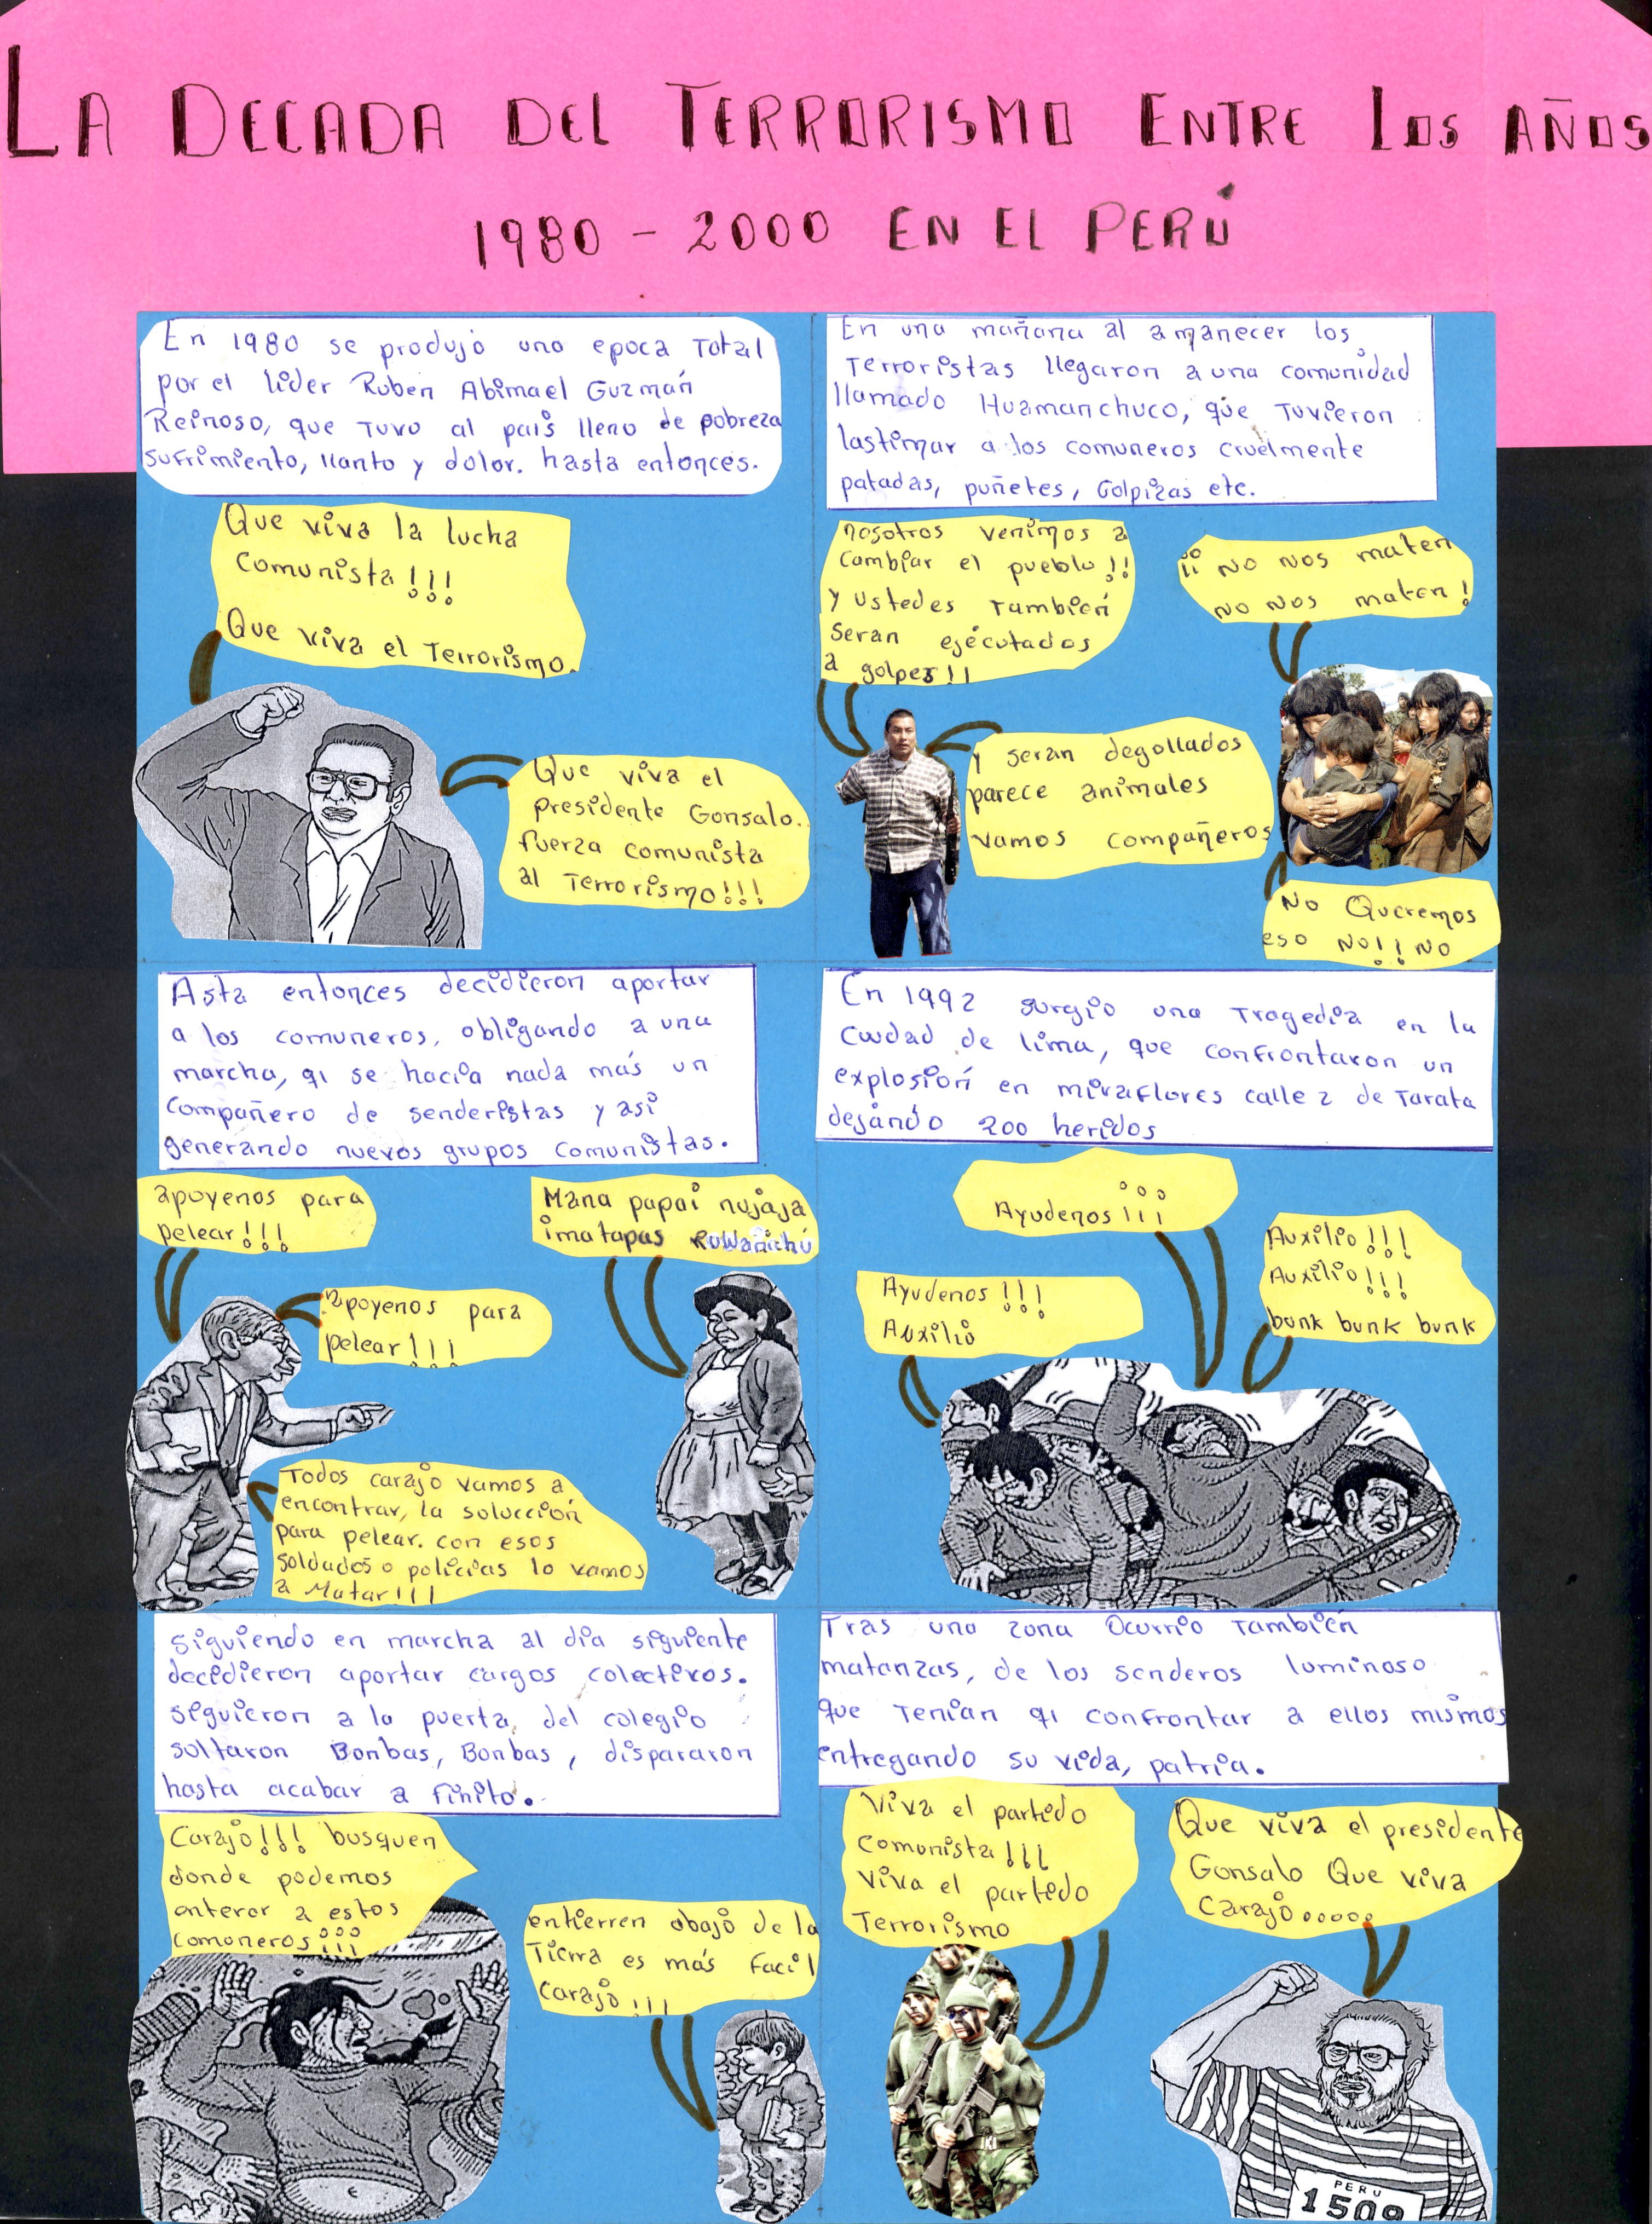 LA DECADA DEL TERRORISMO ENTRE LOS AÑOS
1980 - 2000 EN EL PERÚ
En 1980 se produjo una epoca Total
por el lider Ruben Abimael Guzmán
Reinoso, que Tuvo al país lleno de pobreza
sufrimiento, llanto y dolor. hasta entonces.
Que viva la lucha
Comunista!!!
Que viva el Terrorismo.
Que viva el
presidente Gonsalo.
fuerza comunista
al Terrorismo!!!
En una mañana al amanecer los
Terroristas llegaron a una comunidad
llamado Huamanchuco, que Tuvieron
lastimar a los comuneros cruelmente
patadas, puñetes, Golpizas etc.
nosotros venimos a
Cambiar el pueblo!!
y ustedes Tambien
Seran ejecutados
a golpes!!
¡¡ No nos maten
no nos maten!
y seran degollados
parece animales
vamos compañeros
No Queremos
eso No!! No
Asta entonces decidieron aportar
a los comuneros, obligando a una
marcha, qi se hacía nada más un
Compañero de senderistas y así
generando nuevos grupos comunistas.
apoyenos para
pelear!!!
Mana papai nujaja
imatapas Ruwanichu
apoyenos para
pelear!!!
Todos carajo vamos a
encontrar, la solucción
para pelear. con esos
soldados o policias lo vamos
a Matar!!!
En 1992 surgio una Tragedia en la
Ciudad de lima, que confrontaron un
explosión en miraflores calle 2 de Tarata
dejando 200 heridos
Ayudenos!!!
Auxilio!!!
Auxilio!!!
bunk bunk bunk
Ayudenos!!!
Auxilio
Siguiendo en marcha al día siguiente
decidieron aportar cargos colectivos.
Siguieron a la puerta del colegio
soltaron Bonbas, Bonbas, dispararon
hasta acabar a finito.
Carajo!!! busquen
donde podemos
enterar a estos
comuneros!!!
entierren abajo de la
Tierra es más facil
Carajo!!!
Tras una zona Ocurrio También
matanzas, de los senderos luminoso
que Tenían qi confrontar a ellos mismos
entregando su vida, patria.
Viva el partido
comunista!!!
Viva el partido
Terrorismo
Que viva el presidente
Gonsalo Que viva
Carajo.....
PERU
1509